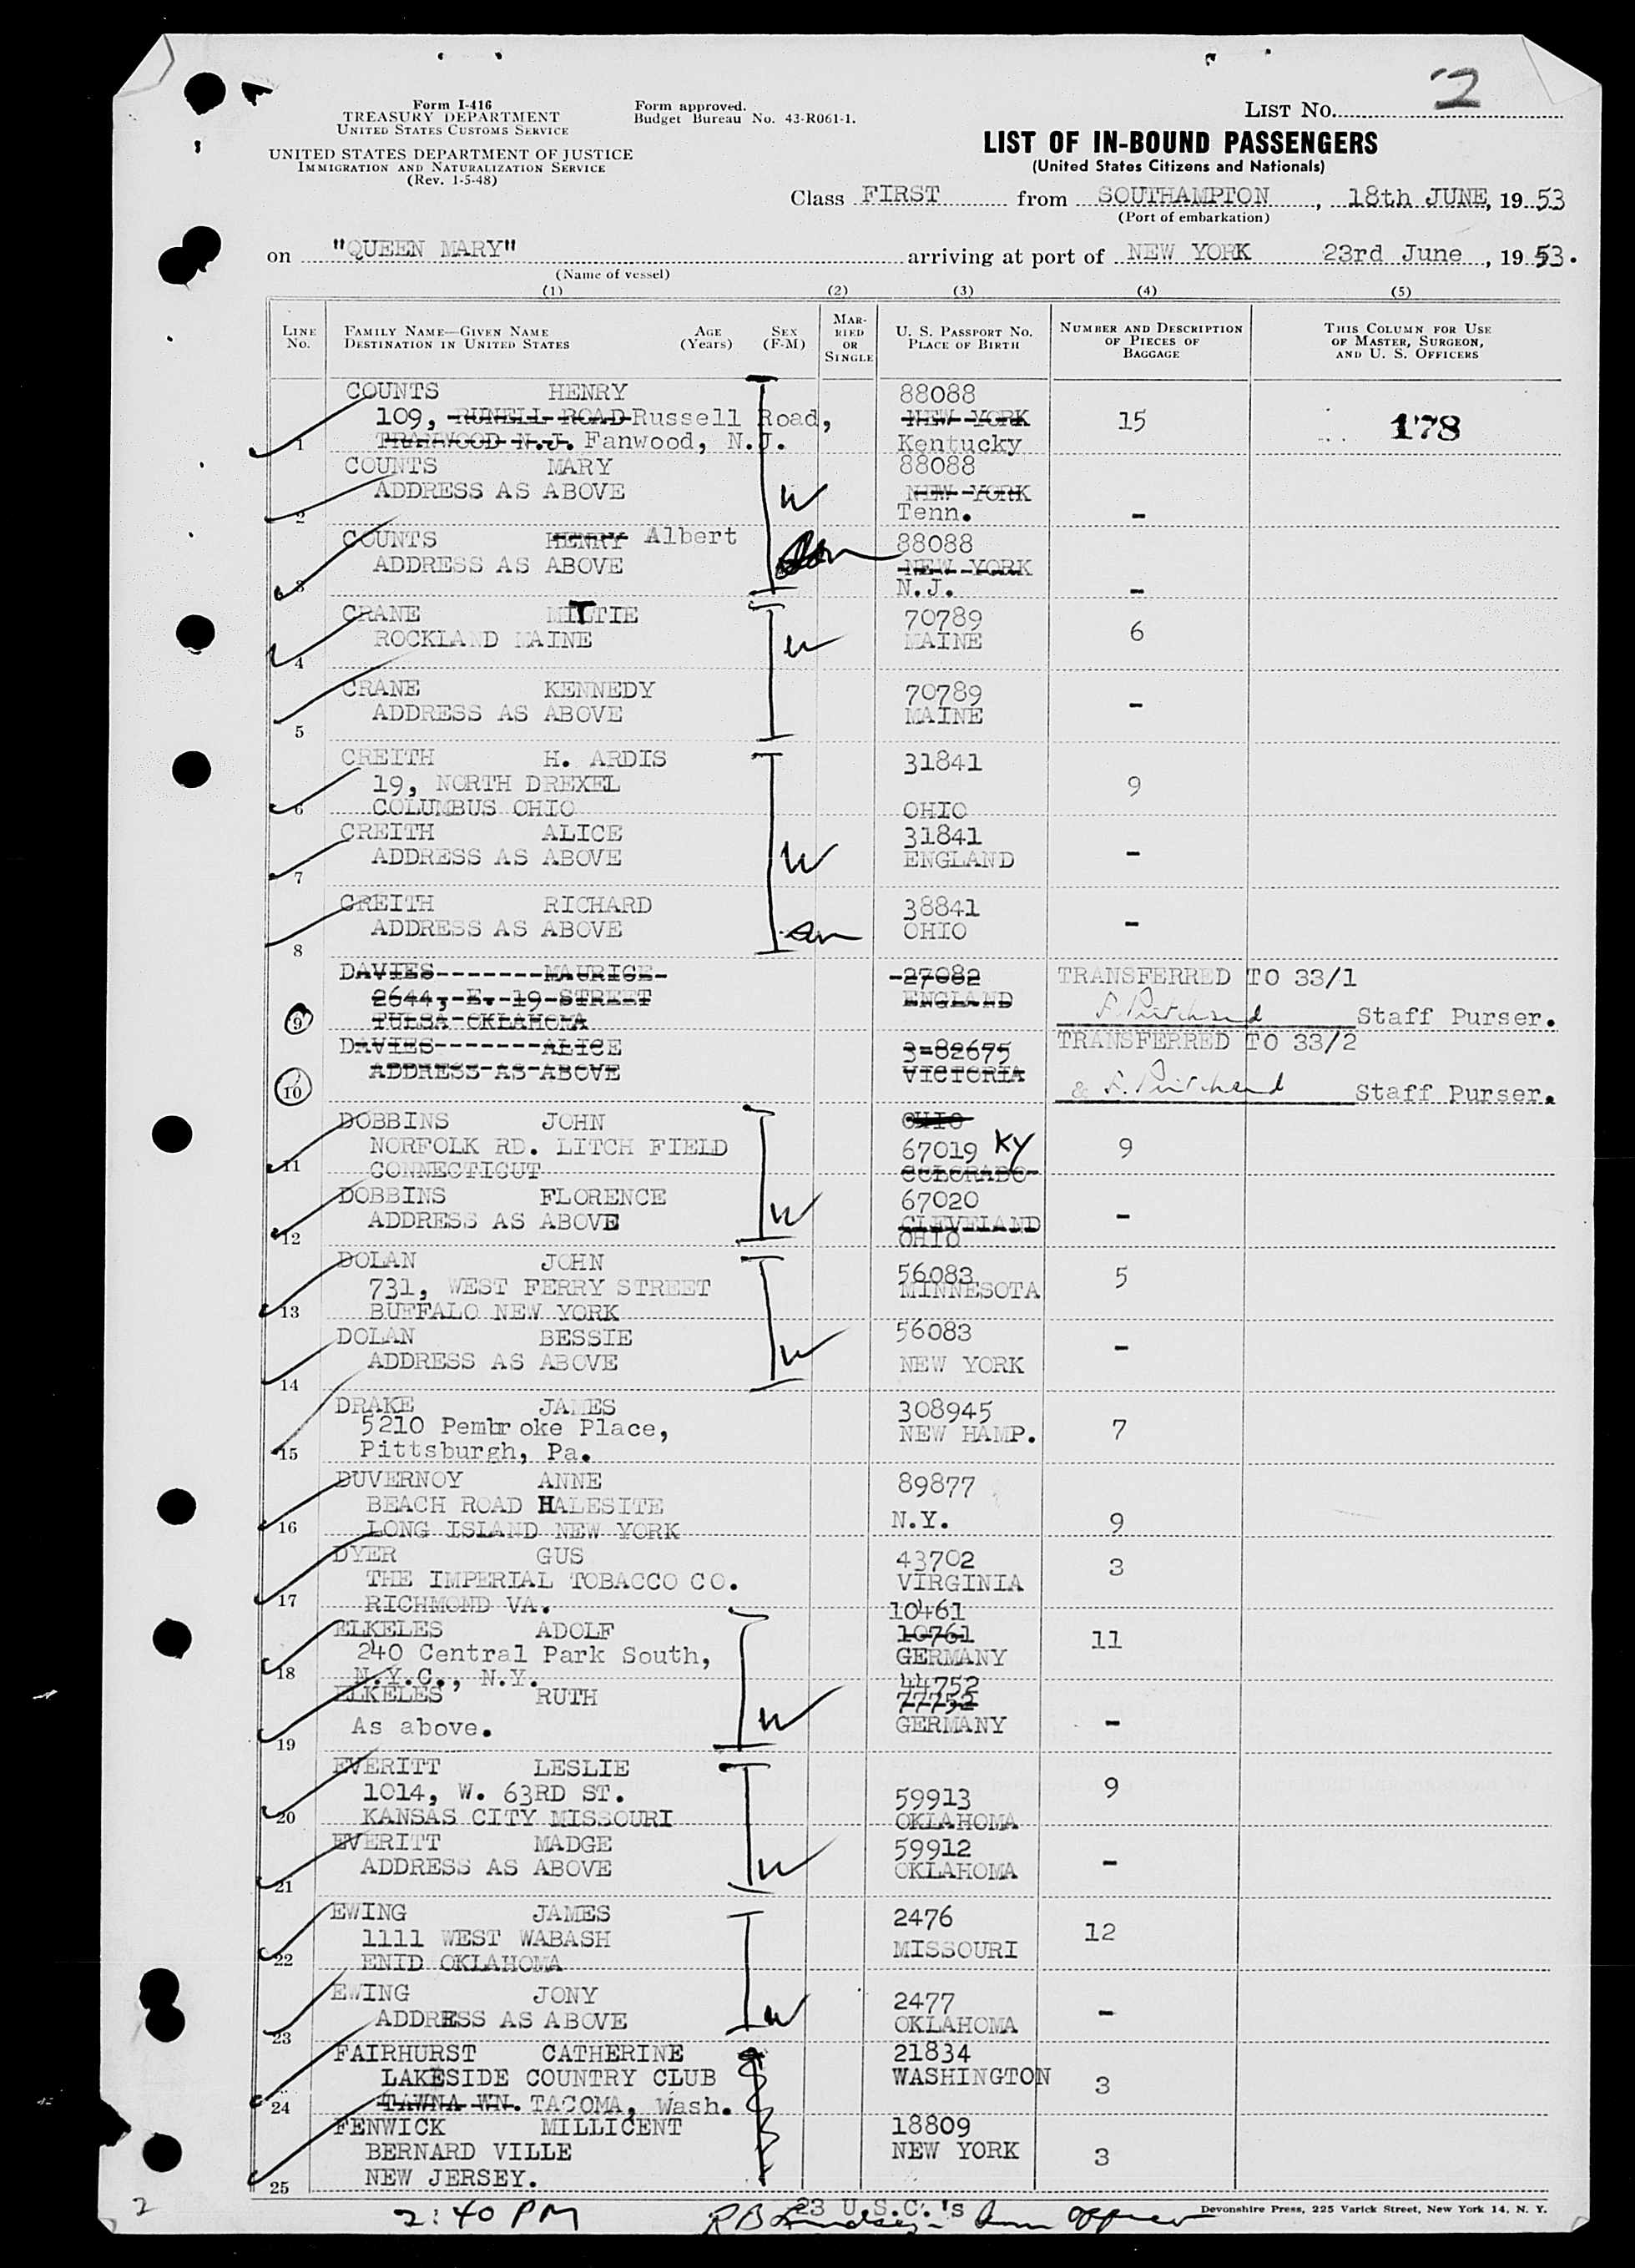 LIST NO. 2
Form I-416
TREASURY DEPARTMENT
UNITED STATES CUSTOMS SERVICE
UNITED STATES DEPARTMENT OF JUSTICE
IMMIGRATION AND NATURALIZATION SERVICE
(Rev. 1-5-48)
Form approved.
Budget Bureau No. 43-R061-1.
LIST OF IN-BOUND PASSENGERS
(United States Citizens and Nationals)
Class FIRST from SOUTHAMPTON, 18th JUNE, 1953
(Port of embarkation)
on "QUEEN MARY" arriving at port of NEW YORK 23rd June, 1953.
(Name of vessel)
(1) (2) (3) (4) (5)
LINE No. FAMILY NAME—GIVEN NAME DESTINATION IN UNITED STATES AGE (Years) SEX (F-M) MARRIED OR SINGLE U. S. PASSPORT NO. PLACE OF BIRTH NUMBER AND DESCRIPTION OF PIECES OF BAGGAGE THIS COLUMN FOR USE OF MASTER, SURGEON, AND U. S. OFFICERS
COUNTS HENRY 88088
109, RUNELL ROAD Russell Road, NEW YORK 15 178
1 TRANWOOD N.J. Fanwood, N.J. Kentucky
COUNTS MARY 88088
ADDRESS AS ABOVE W NEW YORK
2 Tenn. -
COUNTS HENRY Albert 88088
ADDRESS AS ABOVE NEW YORK
3 N.J. -
CRANE MITTIE 70789
ROCKLAND MAINE W MAINE 6
4
CRANE KENNEDY 70789
ADDRESS AS ABOVE MAINE -
5
CREITH H. ARDIS 31841
19, NORTH DREXEL 9
6 COLUMBUS OHIO OHIO
CREITH ALICE 31841
ADDRESS AS ABOVE W ENGLAND -
7
CREITH RICHARD 38841
ADDRESS AS ABOVE OHIO -
8
DAVIES-------MAURICE- -27082 TRANSFERRED TO 33/1
2644,-E.-19-STREET ENGLAND
9 TULSA-OKLAHOMA Staff Purser.
DAVIES-------ALICE 3-82675 TRANSFERRED TO 33/2
ADDRESS-AS-ABOVE VICTORIA
10 Staff Purser.
DOBBINS JOHN OHIO
NORFOLK RD. LITCH FIELD 67019 KY 9
11 CONNECTICUT COLORADO
DOBBINS FLORENCE 67020
ADDRESS AS ABOVE W CLEVELAND -
12 OHIO
DOLAN JOHN 56083
731, WEST FERRY STREET MINNESOTA 5
13 BUFFALO NEW YORK
DOLAN BESSIE 56083
ADDRESS AS ABOVE W NEW YORK -
14
DRAKE JAMES 308945
5210 Pembroke Place, NEW HAMP. 7
15 Pittsburgh, Pa.
DUVERNOY ANNE 89877
BEACH ROAD HALESITE N.Y.
16 LONG ISLAND NEW YORK 9
DYER GUS 43702 3
THE IMPERIAL TOBACCO CO. VIRGINIA
17 RICHMOND VA. 10461
ELKELES ADOLF 10761 11
240 Central Park South, GERMANY
18 N.Y.C., N.Y. 44752
ELKELES RUTH 77752
As above. W GERMANY -
19
EVERITT LESLIE 9
1014, W. 63RD ST. 59913
20 KANSAS CITY MISSOURI OKLAHOMA
EVERITT MADGE 59912
ADDRESS AS ABOVE W OKLAHOMA -
21
EWING JAMES 2476
1111 WEST WABASH MISSOURI 12
22 ENID OKLAHOMA
EWING JONY 2477
ADDRESS AS ABOVE W OKLAHOMA -
23
FAIRHURST CATHERINE 21834
LAKESIDE COUNTRY CLUB WASHINGTON 3
24 TAWNA WN. TACOMA, Wash.
FENWICK MILLICENT 18809
BERNARD VILLE NEW YORK 3
25 NEW JERSEY.
2 2:40 PM 23 U.S.C.'s
Devonshire Press, 225 Varick Street, New York 14, N. Y.